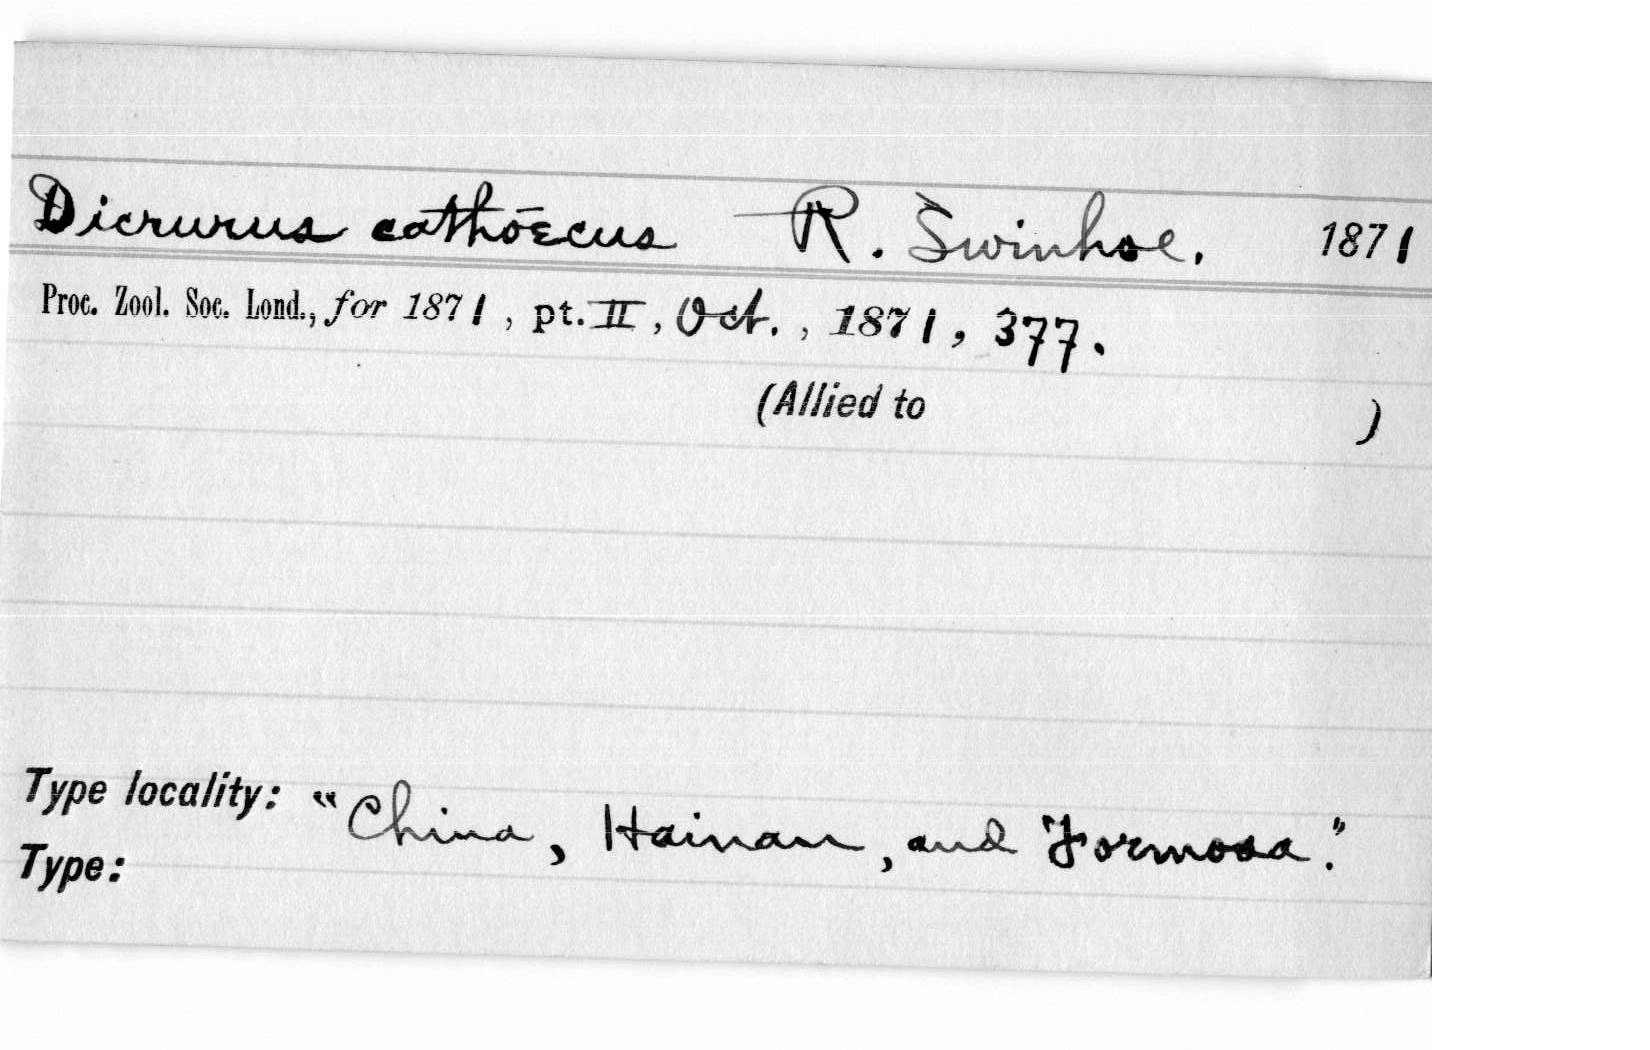 Dicrurus cathoecus R. Swinhoe. 1871
Proc. Zool. Soc. Lond., for 1871, pt. II, Oct., 1871, 377.
(Allied to )
Type locality: "China, Hainan, and Formosa."
Type: